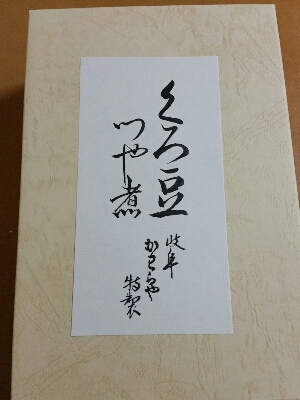 くろ豆
つや煮
岐阜
かわらや
特製